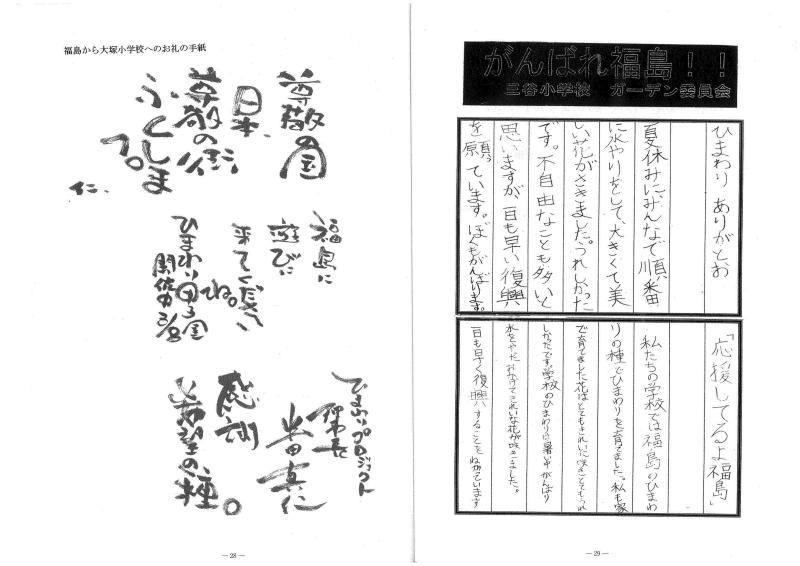 福島から大塚小学校へのお礼の手紙
尊敬の国
日本
尊敬の街
ふくしま
仁
福島に
遊びに
来てください
ね。
ひまわり
開催中
ひまわりプロジェクト
感謝
希望の種。
― 28 ―
がんばれ福島！！
三谷小学校　ガーデン委員会
ひまわり ありがとお
夏休みに、みんなで順番
に水やりをして、大きくて美
しい花がさきました。うれしかった
です。不自由なことも多いと
思いますが、一日も早い復興
を願っています。ぼくもがんばります。
「応援してるよ福島」
私たちの学校では福島のひまわ
りの種でひまわりを育てました。私も家
で育てました花はとてもきれいに咲きとてもうれ
しかったです学校のひまわりは暑い中がんばり
水をやったおかげできれいな花が咲きました。
一日も早く復興することをねがっています
― 29 ―